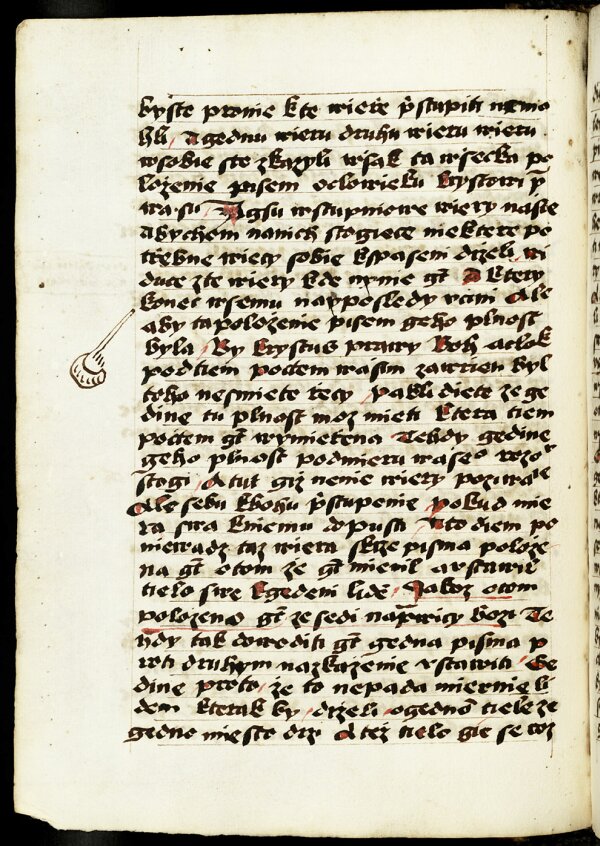 byste pronie kte wieře p̃stupiti nemo
hli A gednu wieru druhu wieru wieru
wsobie ste zkazyli wsak ta wsecka po
loženie pisem oclowieku krystowi p̃
wasu Agsu wstupniowe wiery nasie
abychom nanich stogiece niektere po
trebne wiecy sobie kspasem drželi wi
duce zte wiery kde nynie gt̃ A ktery
konec wsemu nayposledy vcini Ale
aby tapoloženie pisem geho plnost
byla By krystus prawy Boh aclok
podtiem poctem wasim zawrien byl
toho nesmiete řecy pakli diete že ge
dine tu plnost mož mieti ktera tiem
poctem gt̃ wymierena Tehdy gedine
geho plnost podmieru waseo rozo
stogi A tut giž nenie wiery pozi
Ale sebu kbohu p̃stupenie pokud mie
ra swa kniemu dopusti Ato diem po
niewadz taz wiera skrze pisma polože
na gt̃ otom že gt̃ mienil aostawil
tielo swe kgedeni lidẽ Jakož otom
položeno gt̃ že sedi nap̃wicy boži Te
hdy tak dowoditi gt̃ gedna pisma p
roti druhym nazkaženie wstawiti Ge
dine proto že to nepada miernie li
dem kterak by drželi ogednõ tiele že
gedno miesto drž A též tielo gie se roz